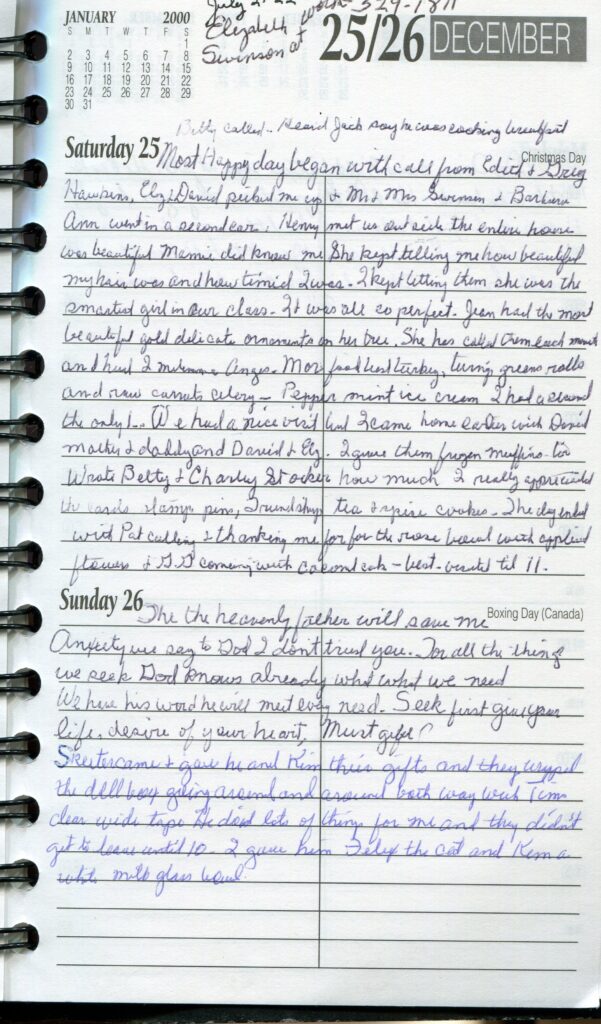 JANUARY 2000
S M T W T F S
1
2 3 4 5 6 7 8
9 10 11 12 13 14 15
16 17 18 19 20 21 22
23 24 25 26 27 28 29
30 31
July
Elizabeth work 329-1811
Swinson at
25/26 DECEMBER
Betty called - Heard Jack say he was cooking breakfast
Saturday 25 Christmas Day
Most Happy day began with call from Edith & Greg
Hawkins, Elz & David picked me up & Mr & Mrs Swinson & Barbara
Ann went in a second car. Henry met us outside the entire house
was beautiful Mamie did know me She kept telling me how beautiful
my hair was and how timid I was. I kept letting them she was the
smartest girl in our class - It was all so perfect. Jean had the most
beautiful gold delicate ornaments on her tree. She has called them each month
and had 2 Angels. food turkey, turnip greens rolls
and raw carrots celery - Pepper mint ice cream I had a second
the only 1 - We had a nice visit but I came home earlier with David
mother & daddy and David & Elz. I gave them frozen muffins to
Wrote Betty & Charley Stocker how much I really appreciated
the cards stamps pins, Friendship tea & spice cookies - The day ended
with Pat calling & thanking me for for the rose bowl with applied
flowers & coming with coconut cake - best - visited til 11.
Sunday 26 Boxing Day (Canada)
The the heavenly father will save me
Anxiety we say to God I don't trust you. For all the things
we seek God knows already what what we need
We have his word he will meet every need. Seek first give your
life, desire of your heart, Must gifts?
Skeeter came & gave he and Kim their gifts and they wrapped
the doll box going around and around both way with
clear wide tape He did lots of things for me and they didn't
get to leave until 10 - I gave him Felix the cat and Kim a
white milk glass bowl.